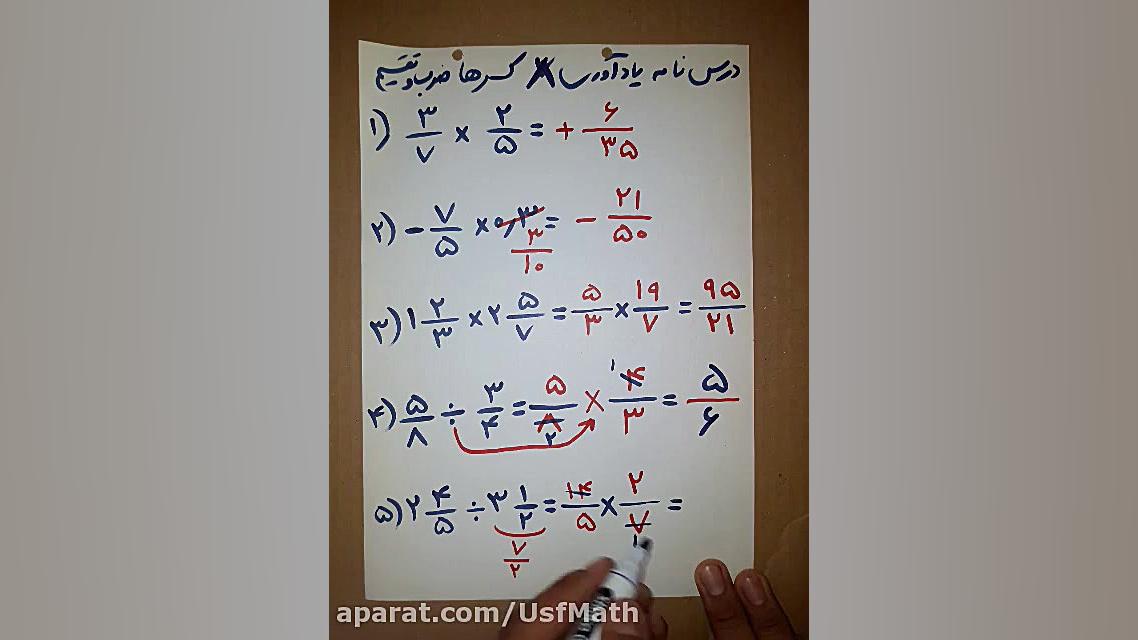 درس نامه یادآوری کسرها ضرب و تقسیم
۱) ۳/۷ × ۲/۵ = + ۶/۳۵
۲) - ۷/۵ × ۰٫۳ ۳/۱۰ = - ۲۱/۵۰
۳) ۱ ۲/۳ × ۲ ۵/۷ = ۵/۳ × ۱۹/۷ = ۹۵/۲۱
۴) ۵/۸ ÷ ۳/۴ = ۵/۸ ۲ × ۱ ۴/۳ = ۵/۶
۵) ۲ ۴/۵ ÷ ۳ ۱/۲ = ۱۴/۵ × ۲/۷ ۱ =
۷/۲
aparat.com/UsfMath